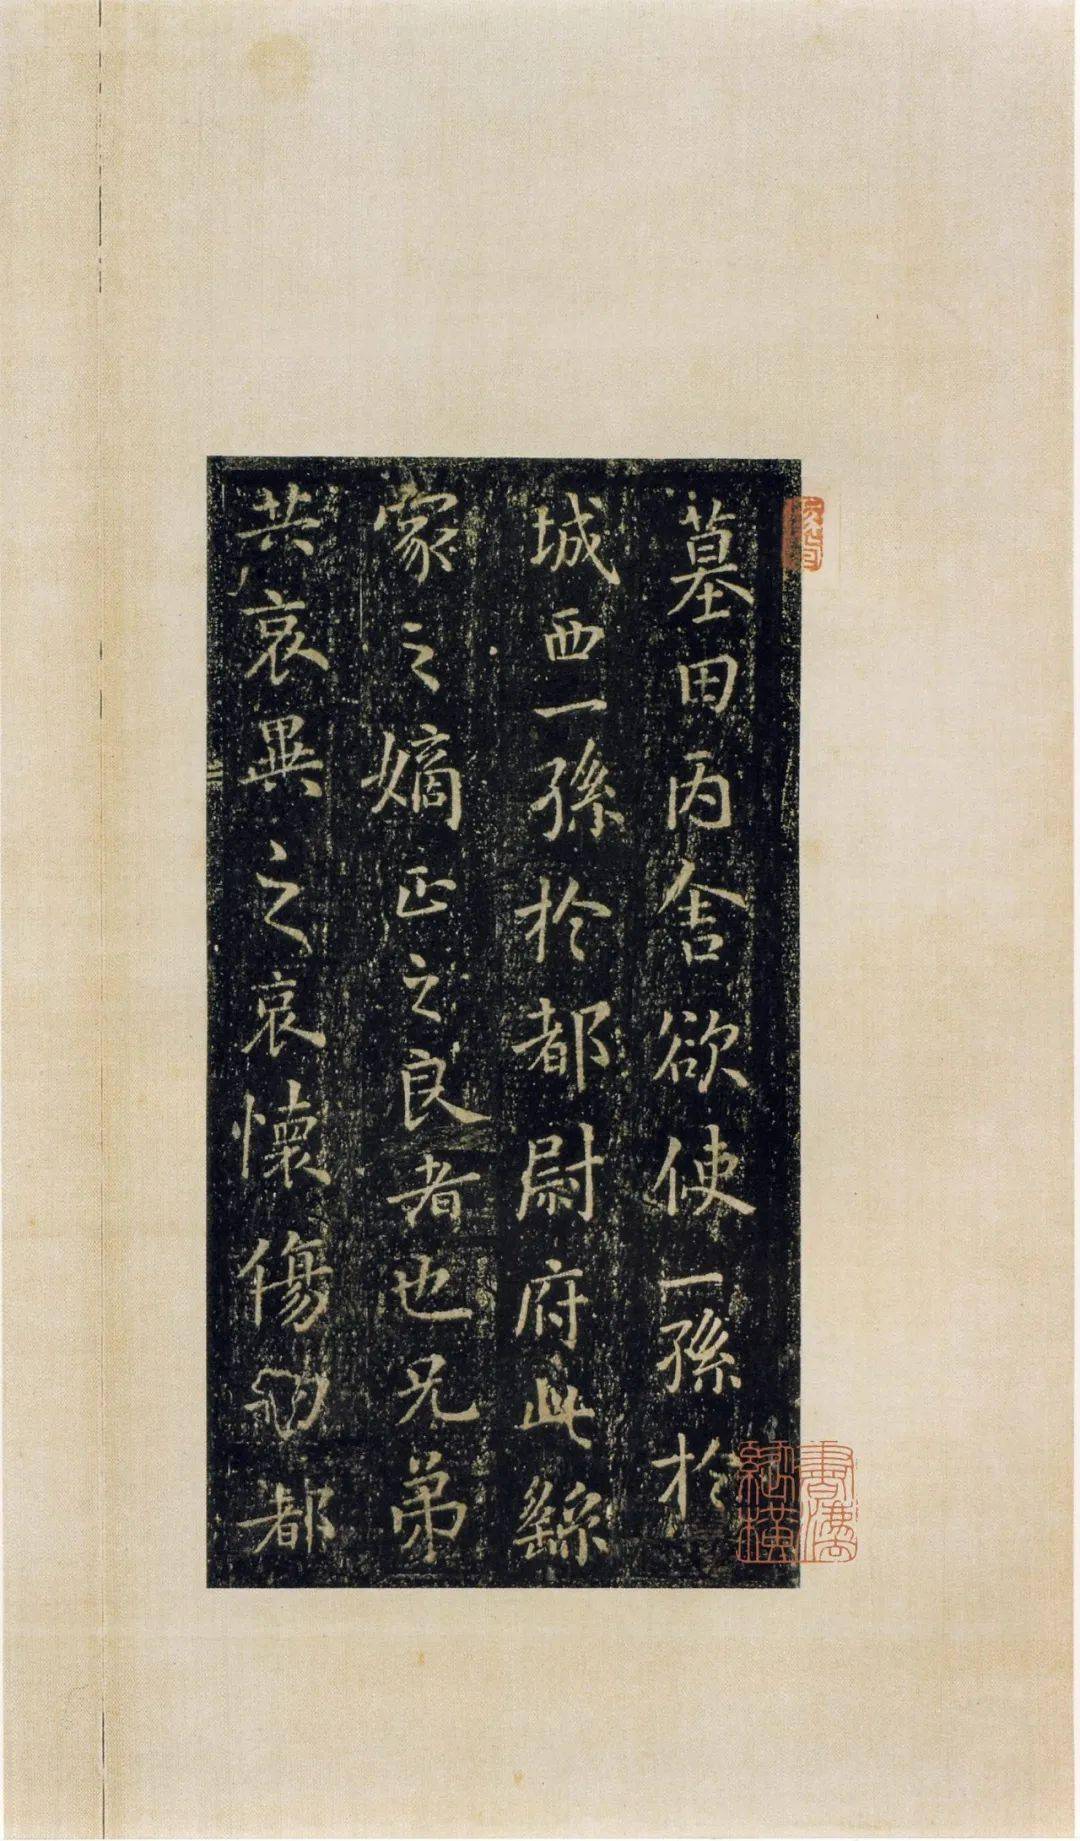 墓田丙舍欲使一孫於
城西一孫於都尉府此繇
家之嫡正之良者也兄弟
共哀異之哀懷傷切都